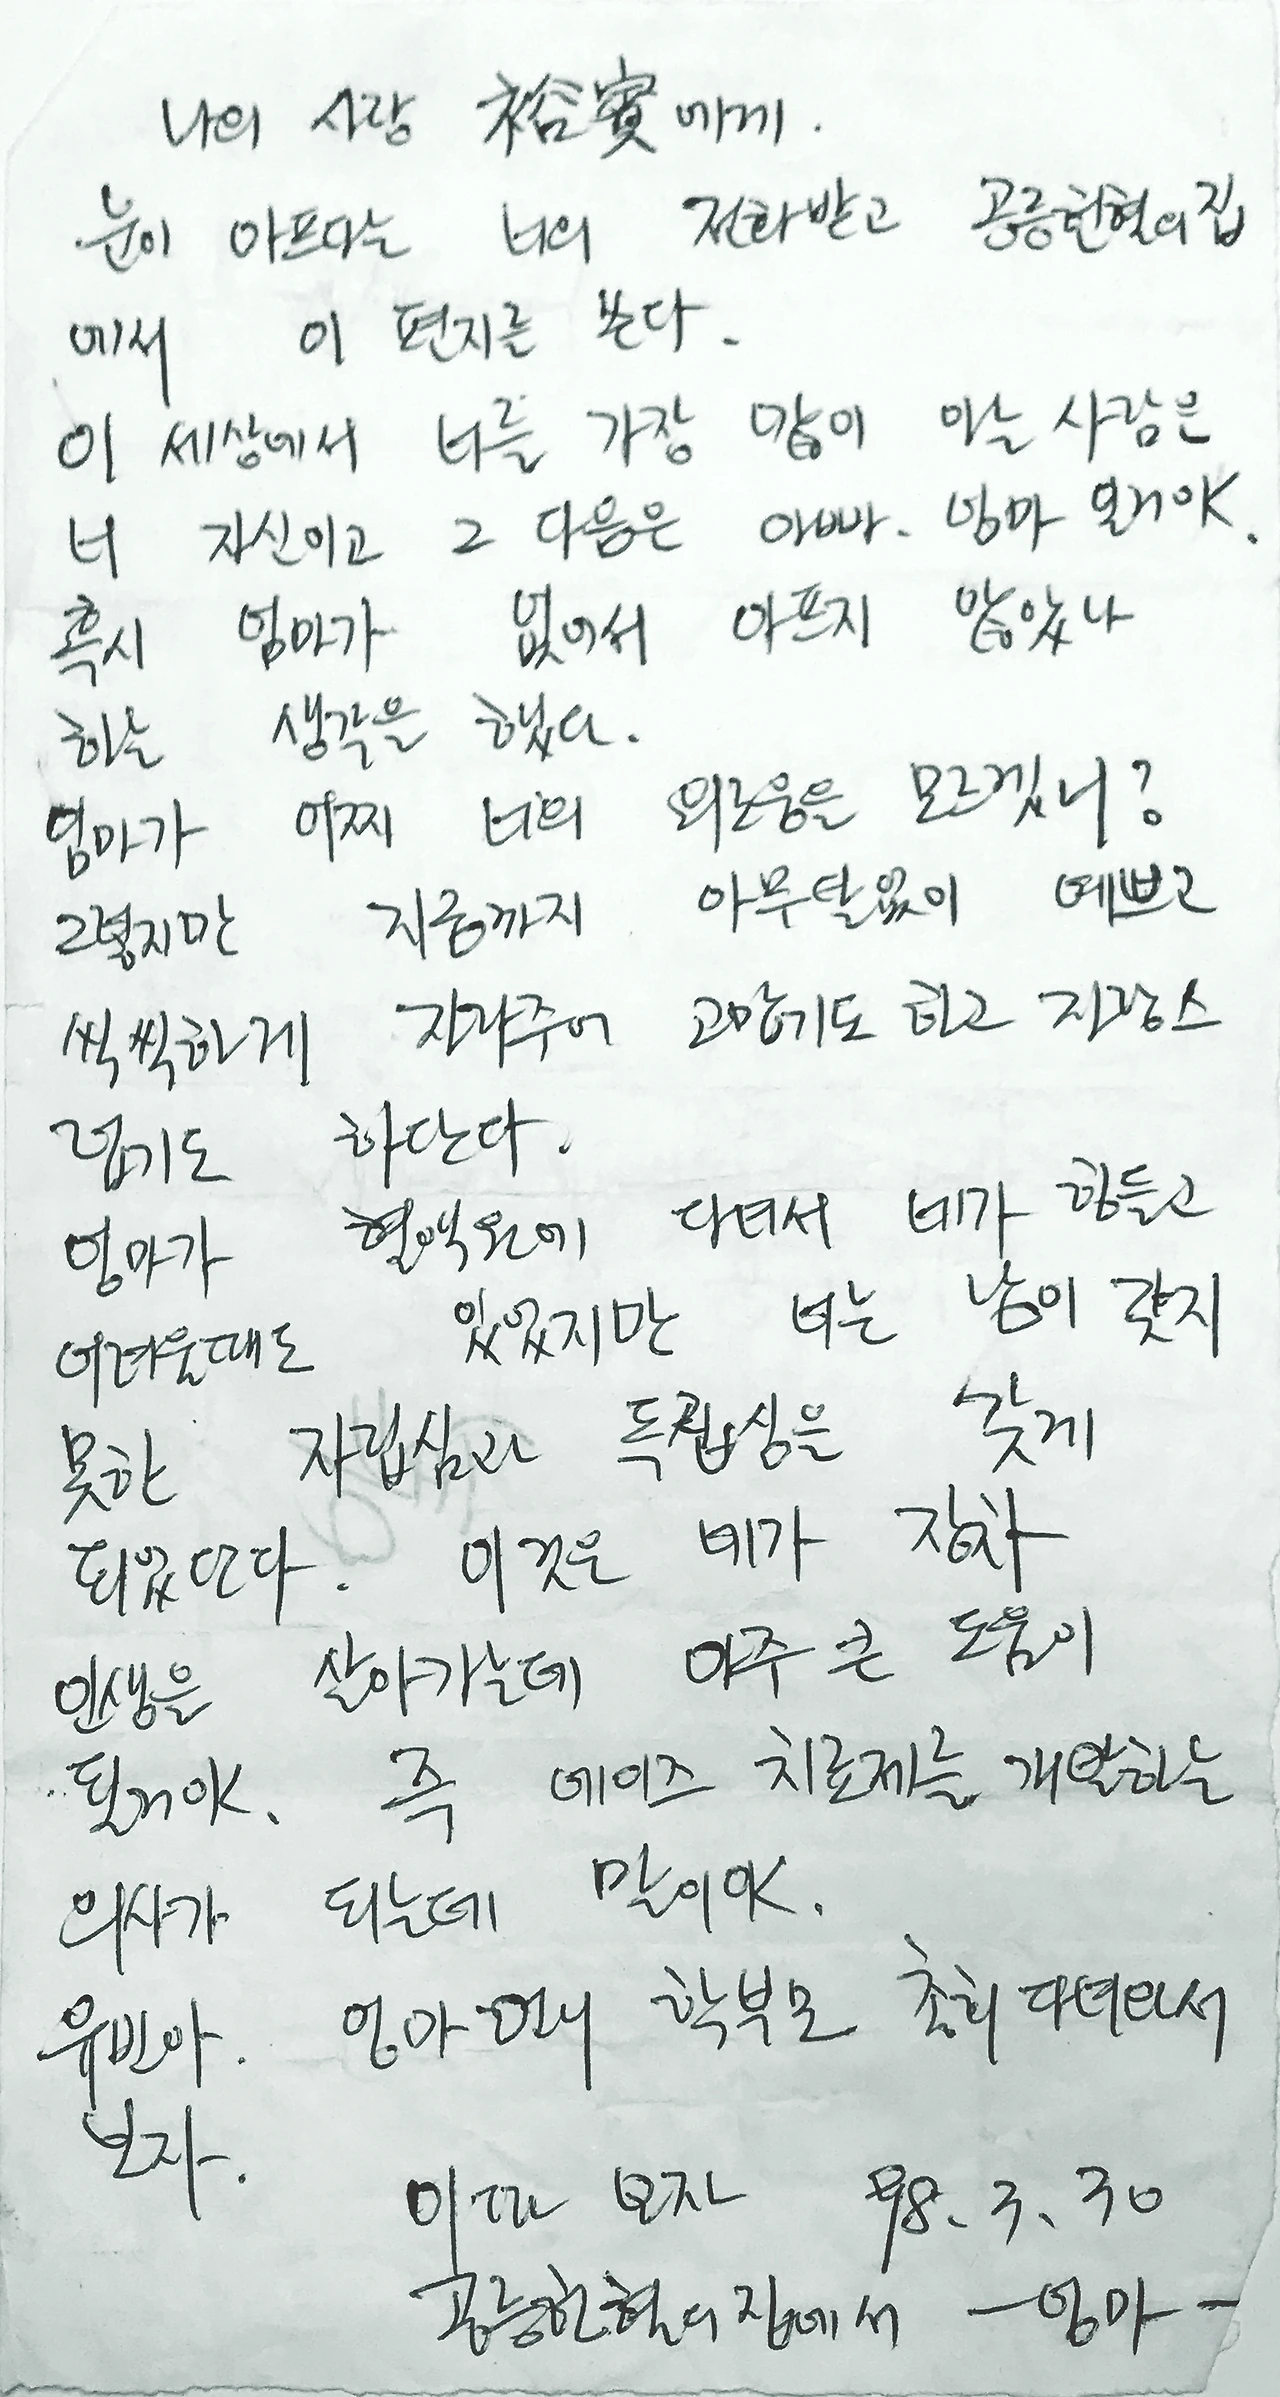 나의 사랑 裕賓에게.
눈이 아프다는 너의 전화받고 공릉헌혈의집
에서 이 편지를 쓴다.
이 세상에서 너를 가장 많이 아는 사람은
너 자신이고 그 다음은 아빠. 엄마 일거야.
혹시 엄마가 없어서 아프지 않았나
하는 생각을 했다.
엄마가 어찌 너의 외로움을 모르겠니?
그렇지만 지금까지 아무탈없이 예쁘고
씩씩하게 자라주어 고맙기도 하고 자랑스
럽기도 하단다.
엄마가 혈액원에 다녀서 네가 힘들고
어려울때도 있었지만 너는 남이 갖지
못한 자립심과 독립심을 갖게
되었단다. 이것은 네가 장차
인생을 살아가는데 아주 큰 도움이
될거야. 즉 에이즈 치료제를 개발하는
의사가 되는데 말이야.
유빈아. 엄마 언니 학부모 총회 다녀와서
보자.
이따 보자 98. 3. 30
공릉헌혈의집에서 -엄마-